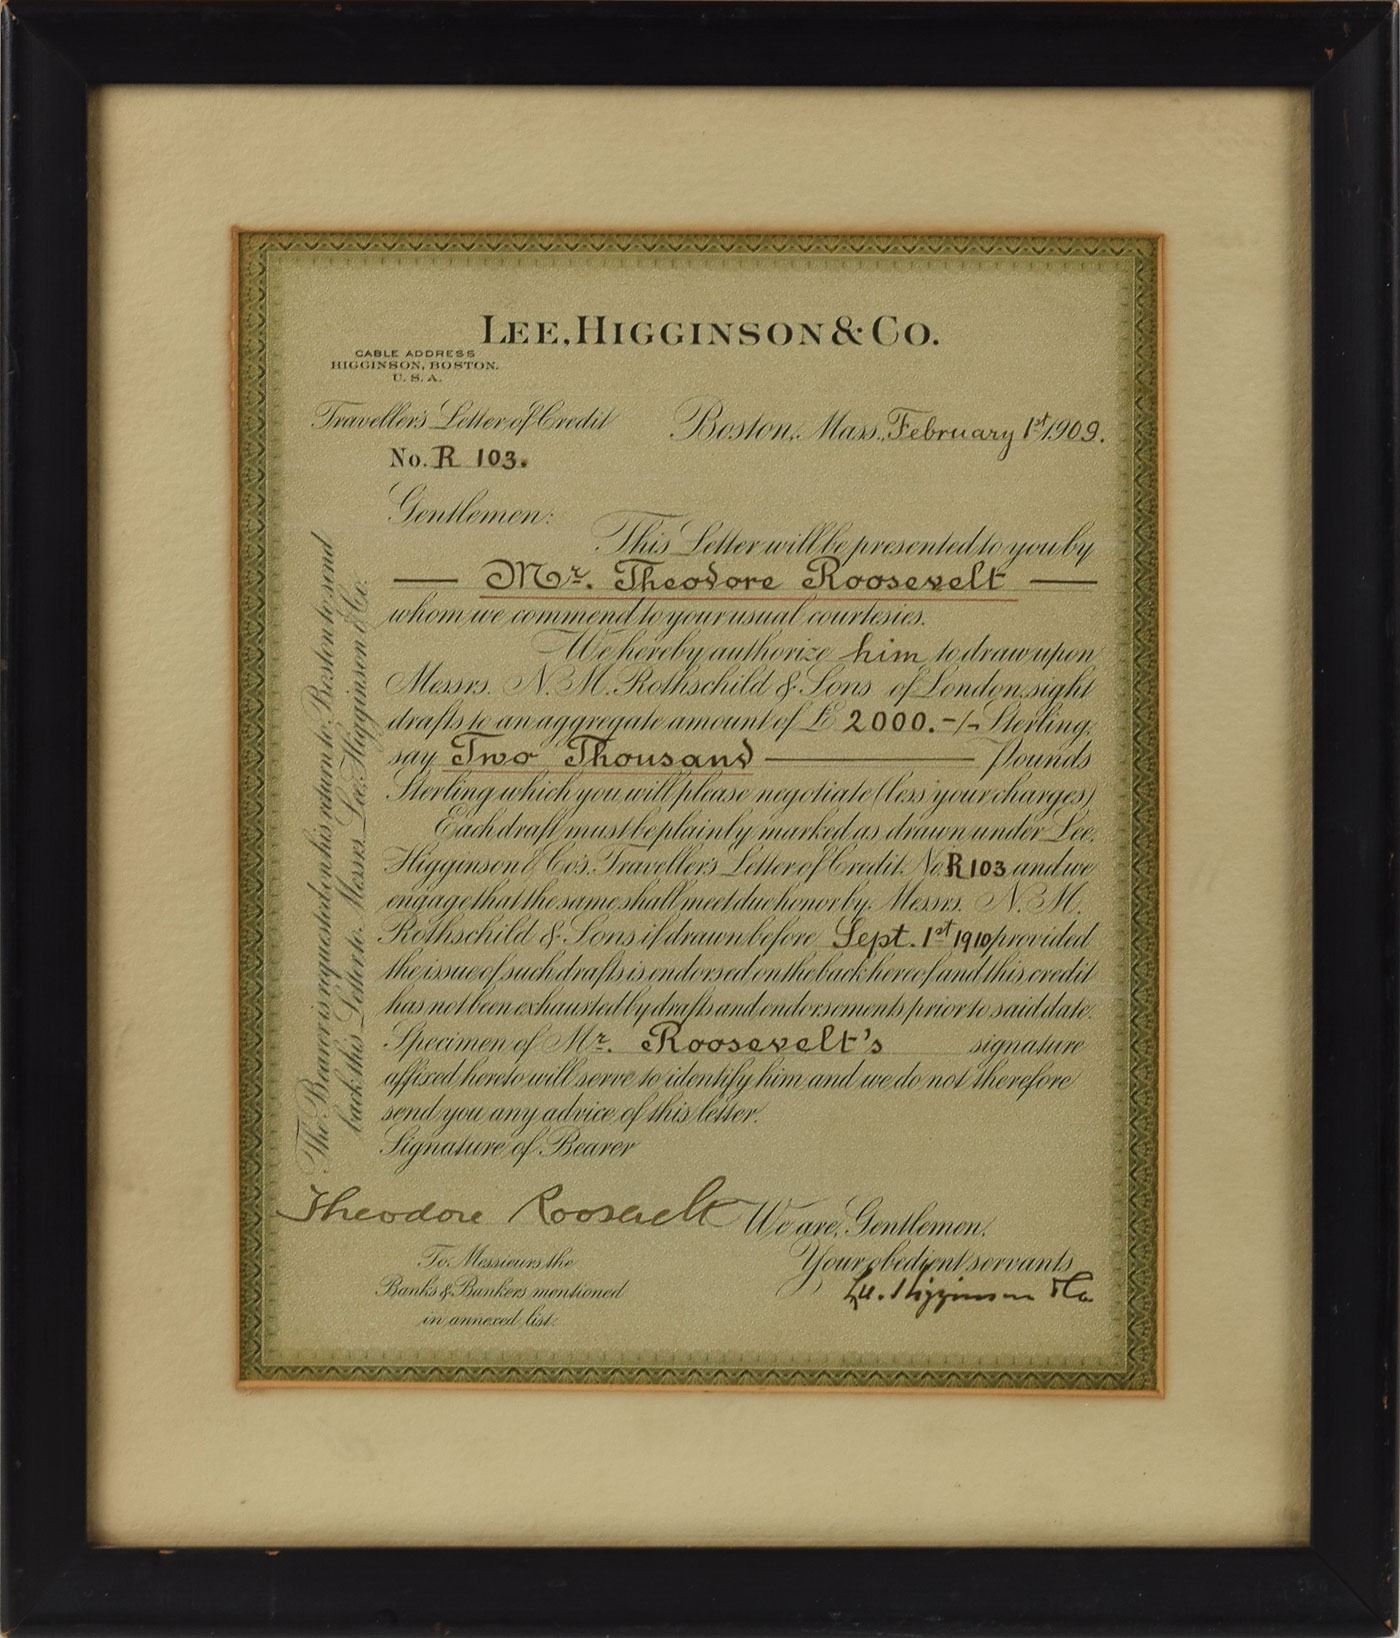 LEE, HIGGINSON & CO.
CABLE ADDRESS
HIGGINSON, BOSTON.
U. S. A.
Travellers Letter of Credit
Boston, Mass, February 1st 1909.
No. R 103.
Gentlemen:
This Letter will be presented to you by
Mr. Theodore Roosevelt
whom we commend to your usual courtesies.
We hereby authorize him to draw upon
Messrs. N. M. Rothschild & Sons of London, sight
drafts to an aggregate amount of £ 2000.-/- Sterling,
say Two Thousand Pounds
Sterling which you will please negotiate (less your charges)
Each draft must be plainly marked as drawn under Lee,
Higginson & Co's. Traveller's Letter of Credit No R 103 and we
engage that the same shall meet due honor by Messrs. N. M.
Rothschild & Sons if drawn before Sept. 1st 1910 provided
the issue of such drafts is endorsed on the back hereof and this credit
has not been exhausted by drafts and endorsements prior to said date.
Specimen of Mr. Roosevelt's signature
affixed hereto will serve to identify him and we do not therefore
send you any advice of this letter.
Signature of Bearer
Theodore Roosevelt
We are, Gentlemen,
Your obedient servants
Lee, Higginson & Co
To Messieurs the
Banks & Bankers mentioned
in annexed list.
The Bearer is requested on his return to Boston to send
back this Letter to Messrs. Lee, Higginson & Co.